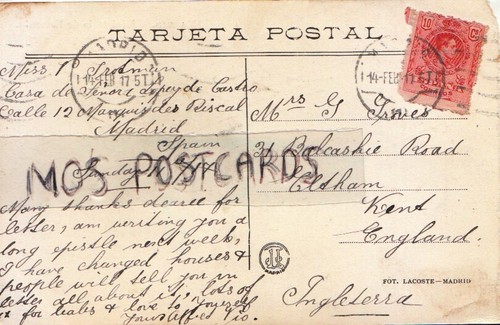 TARJETA POSTAL
MADRID
14-FEB 17 5T
10 Cs
14-FEB 17 5T
Miss I
Casa de Señor Lopez de Castro
Calle 12 Marques des Riscal
Madrid
Spain
Sunday
Many thanks dearie for
letter, am writing you a
long epistle next week,
I have changed houses &
people will tell you in
letter all about it, lots of
for babes & love to yourself
Yours
Mrs G
31 Balcaskie Road
Eltham
Kent
England.
Ingleterra
MADRID
FOT. LACOSTE-MADRID
MO'S POSTCARDS